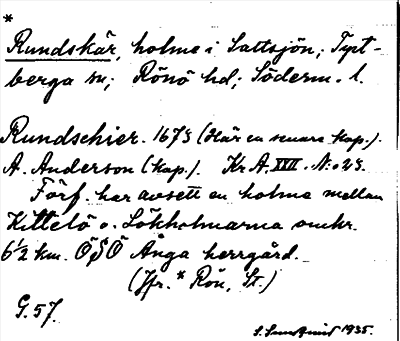 *
Rundskär, holme i Saltsjön; Tyst-
berga sn; Rönö hd; Söderm. l.
Rundschier. 1675 (Här en senare kop.).
A. Anderson (kap.). Kr A. XXII. N:o 23.
Förf. har avsett en holme mellan
Kittelö o. Lökholmarna omkr.
6 1/2 km. ÖSÖ Änga herrgård.
(Jfr. * Rön, St.)
G. 57.
1935.